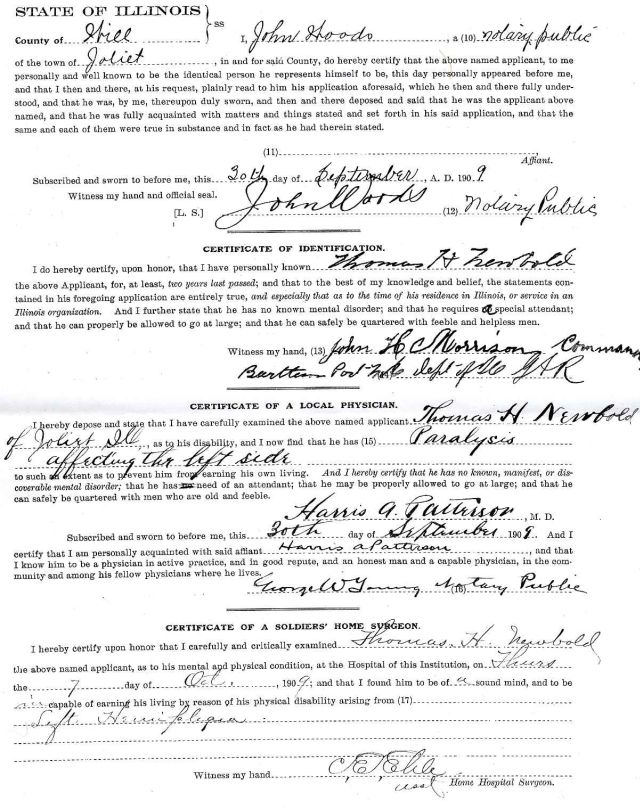 STATE OF ILLINOIS } ss
County of Will I, John Woods, a (10) notary public
of the town of Joliet, in and for said County, do hereby certify that the above named applicant, to me
personally and well known to be the identical person he represents himself to be, this day personally appeared before me,
and that I then and there, at his request, plainly read to him his application aforesaid, which he then and there fully under-
stood, and that he was, by me, thereupon duly sworn, and then and there deposed and said that he was the applicant above
named, and that he was fully acquainted with matters and things stated and set forth in his said application, and that the
same and each of them were true in substance and in fact as he had therein stated.
(11)
Affiant.
Subscribed and sworn to before me, this 30th day of September, A. D. 1909
Witness my hand and official seal. John Woods
[L. S.] (12) Notary Public
CERTIFICATE OF IDENTIFICATION.
I do hereby certify, upon honor, that I have personally known Thomas H Newbold
the above Applicant, for, at least, two years last passed; and that to the best of my knowledge and belief, the statements con-
tained in his foregoing application are entirely true, and especially that as to the time of his residence in Illinois, or service in an
Illinois organization. And I further state that he has no known mental disorder; and that he requires a special attendant;
and that he can properly be allowed to go at large; and that he can safely be quartered with feeble and helpless men.
Witness my hand, (13) John H C Morrison
Post Dept of Ill GAR
CERTIFICATE OF A LOCAL PHYSICIAN.
I hereby depose and state that I have carefully examined the above named applicant Thomas H Newbold
of Joliet Ill, as to his disability, and I now find that he has (15) Paralysis
affecting the left side
to such an extent as to prevent him from earning his own living. And I hereby certify that he has no known, manifest, or dis-
coverable mental disorder; that he has need of an attendant; that he may be properly allowed to go at large; and that he
can safely be quartered with men who are old and feeble.
Harris A. Patterson, M. D.
Subscribed and sworn to before me, this 30th day of September 1909. And I
certify that I am personally acquainted with said affiant Harris A Patterson, and that
I know him to be a physician in active practice, and in good repute, and an honest man and a capable physician, in the com-
munity and among his fellow physicians where he lives.
George W Young Notary Public
(16)
CERTIFICATE OF A SOLDIERS' HOME SURGEON.
I hereby certify upon honor that I carefully and critically examined Thomas. H. Newbold
the above named applicant, as to his mental and physical condition, at the Hospital of this Institution, on Thurs
the 7 day of Oct., 1909; and that I found him to be of a sound mind, and to be
in capable of earning his living by reason of his physical disability arising from (17)
Left Hemiplegia
Witness my hand
Home Hospital Surgeon.